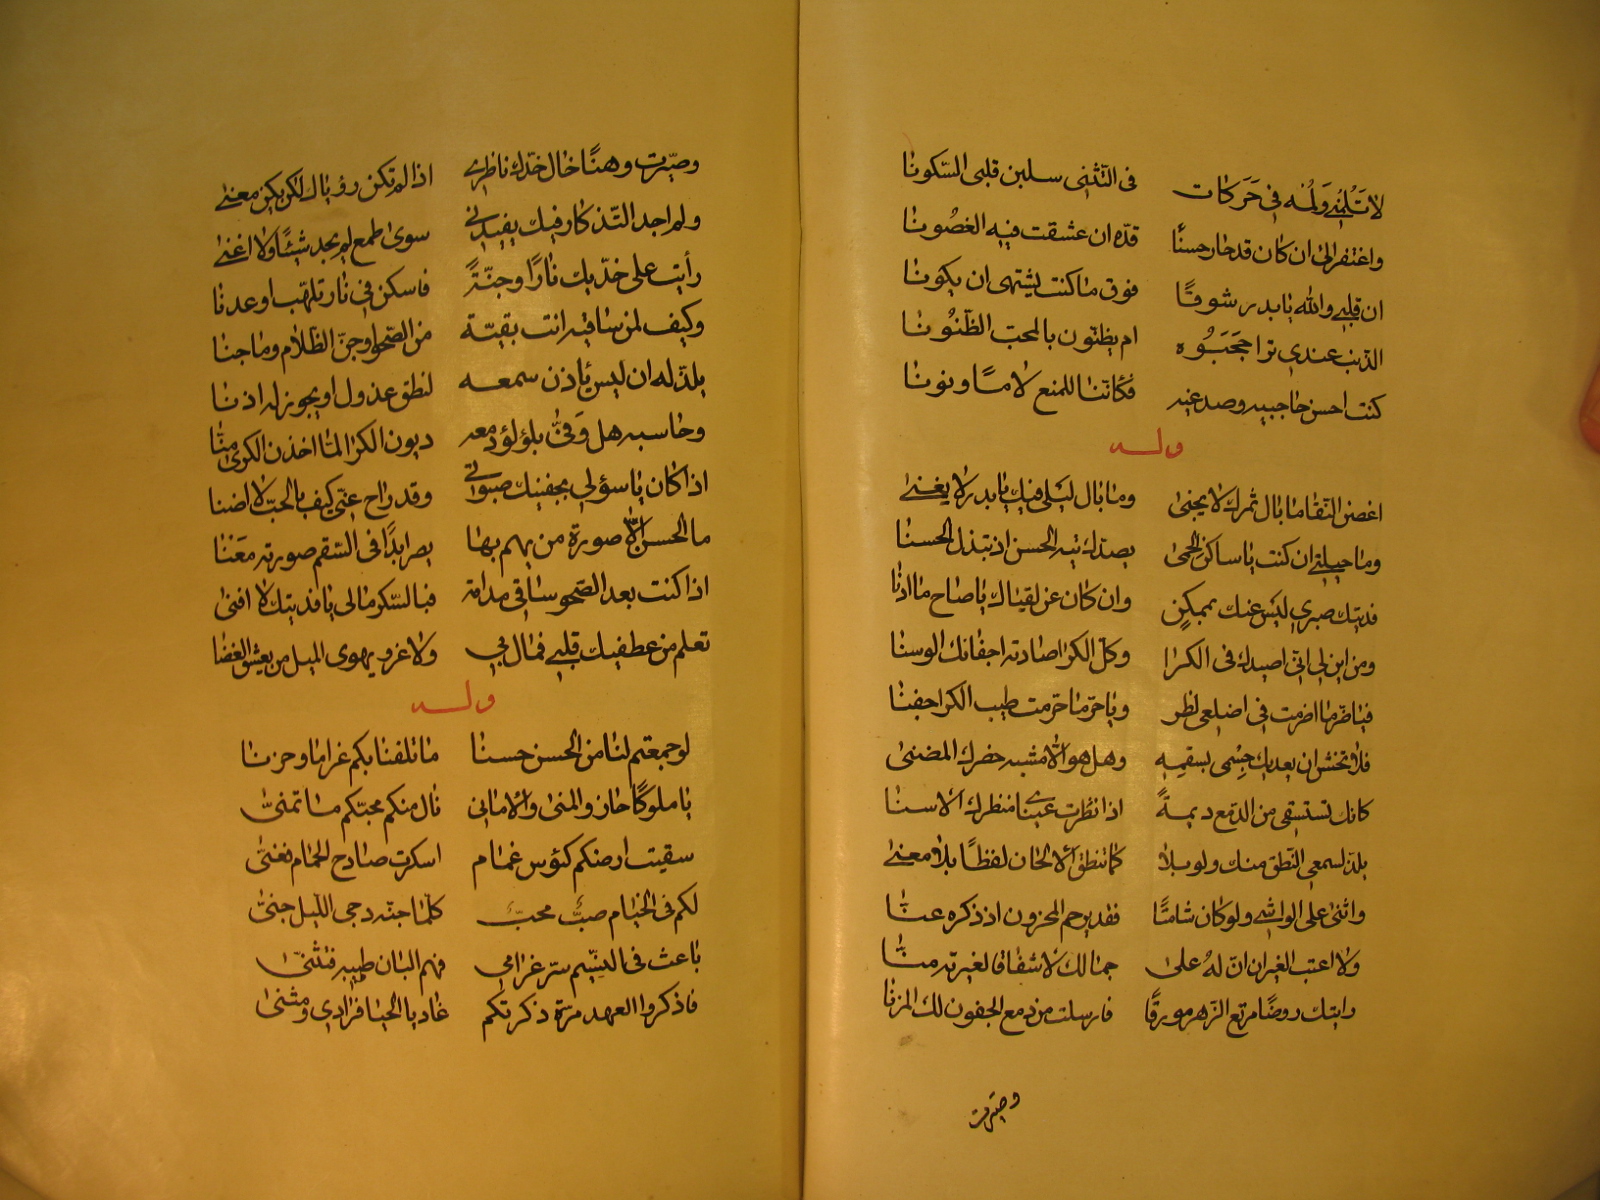 لا تَلُمْنِي وَلُمْه في حَرَكات في التّثنّى سلبن قلبي السّكونا
واغتفر لي ان كان قد حار حسنًا قدّه ان عشقت فيه الغصُونا
ان قلبي والله يا بدر شوقًا فوق ما كنت يشتهى ان يكونا
الذنب عندي ترا حَجَبُوه ام يظنّون بالمحبّ الظّنُونا
كنت احسن حاجبيه وصدغيه فكانتا للمنع لامًا ونونا
وله
اغصن النّقا ما بال ثمرك لا يجنى وما بال ليلى فيك يا بدر لا يفنى
وما حيلتي ان كنت يا ساكن الحمى يصدك تيه الحسن اذ تبذل الحسنا
فديتك صبري ليس عنك بممكنٍ وان كان عن لقياك يا صاح ما ادنا
ومن اين لي انّى اصيدك في الكرا وكلّ الكرا صادته اجفانك الوسنا
فيا ضرّ ما اضرمت في اضلعي لظى ويا حرّ ما حرّمت طيب الكرا جفنا
فلا تخش ان يعديك جسمي بسقمه وهل هو الّا مشبه خصرك المضنى
كانك تستسقى من الدّمع ديمةً اذا نظرت عيناي منظرك الاسنا
يلذّ لسمعي النّطق منك ولو بلا كما تنطق الالحان لفظًا بلا معنى
واثنى على الواشي ولو كان شامتًا فقد يرحم المحزون اذ ذكره عنّا
ولا اعتب الغيران انّ لهُ على جمالك لاشفاقا لغيرته منّا
رايتك روضًا مرتع الزّهر مورقًا فارسلت من دمع الجفون لك المزنا
وصيّرت
وصيّرت وهنًا خال خدّك ناظري اذا لم تكن رؤياك لكن يكن معنى
ولم اجد التّذكار فيك يفيدني سوى طمع لم يجد شيئًا ولا اغنى
رأيت على خدّيك نارًا وجنّةً فاسكن في نار تلهّب او عدنا
وكيف لمن ساقيه انت بقيّة من الصّحو او جنّ الظّلام وما جنا
يلذّ له ان ليس يأذن سمعه لنطق عذول او يجوز له اذنا
وحاسبه هل وَفىّ بلؤلؤ دمعه ديون الكرا لمّا اخذن الكرى منّا
اذا كان يا سؤلي بجفنيك صبوتي وقد راح عنّي كيف بالحبّ لا اضنا
ما الحسن الّا صورة من يهم بها يصر ابدًا في السّقم صورته مَعْنا
اذا كنت بعد الصّحو ساقي مدامة فبالسّكر مالي يا فديتك لا افنى
تعلم من عطفيك قلبي فمال بي ولا غرو يهوى الميل من يعشق الغصنا
وله
لو جمعتم لنا من الحسن حسنا ما تلفنا بكم غراما وحزنا
يا ملوكًا حازو المنى والاماني نال منكم محبّكم ما تمنىّ
سقيت ارضكم كئوس غمام اسكرت صادح الحمام فغنىّ
لكم في الخيام صبٌّ محبٌّ كلّما جنّه دجى اللّيل جنىّ
باعث في النسّيم سرّ غرامي فهم البان طيبه فتثنىّ
فاذكروا العهد مرّة ذكرتكم غاديا الحيا فرادي ومثنى